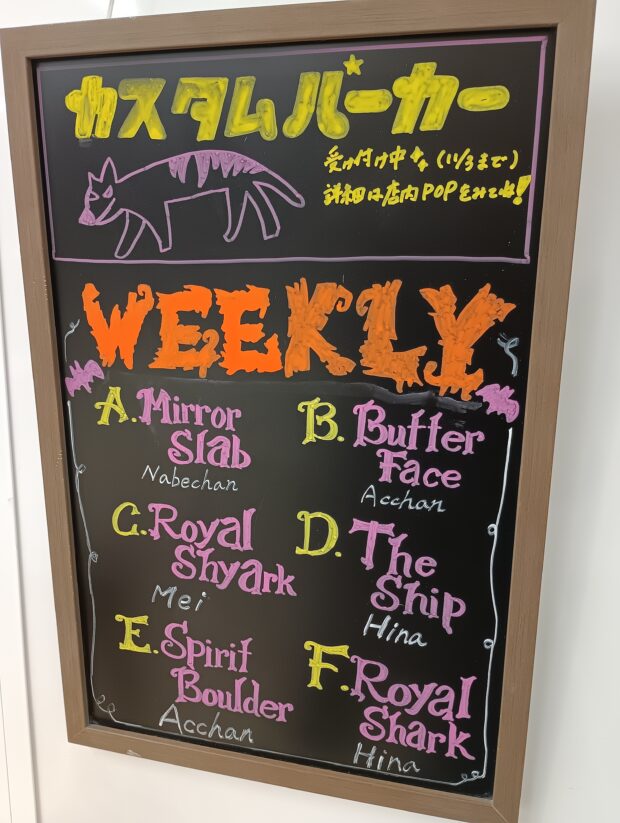 カスタムパーカー
受け付け中 (11/3まで)
詳細は店内POPをみてね!
WEEKLY
A. Mirror Slab
Nabechan
B. Butter Face
Acchan
C. Royal Shyark
Mei
D. The Ship
Hina
E. Spirit Boulder
Acchan
F. Royal Shark
Hina